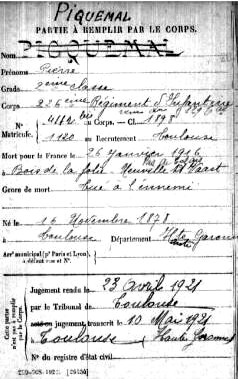 PIQUEMAL
PARTIE À REMPLIR PAR LE CORPS.
Nom PIQUEMAL
Prénoms Pierre
Grade 2ème classe
Corps 226ème Régiment d'Infanterie
N° 4862 bis au Corps. — Cl. 1898
Matricule. 1120 au Recrutement Toulouse
Mort pour la France le 26 janvier 1916
Bois de la folie Neuville St Vaast
Genre de mort tué à l'ennemi
Né le 16 Novembre 1878
à Toulouse Département Hte Garonne
Arrt municipal (pr Paris et Lyon),
à défaut rue et N°.
Cette partie n'est pas à remplir par le Corps.
Jugement rendu le 23 Avril 1921
par le Tribunal de Toulouse
acte ou jugement transcrit le 10 Mai 1921
à Toulouse (Haute Garonne)
N° du registre d'état civil